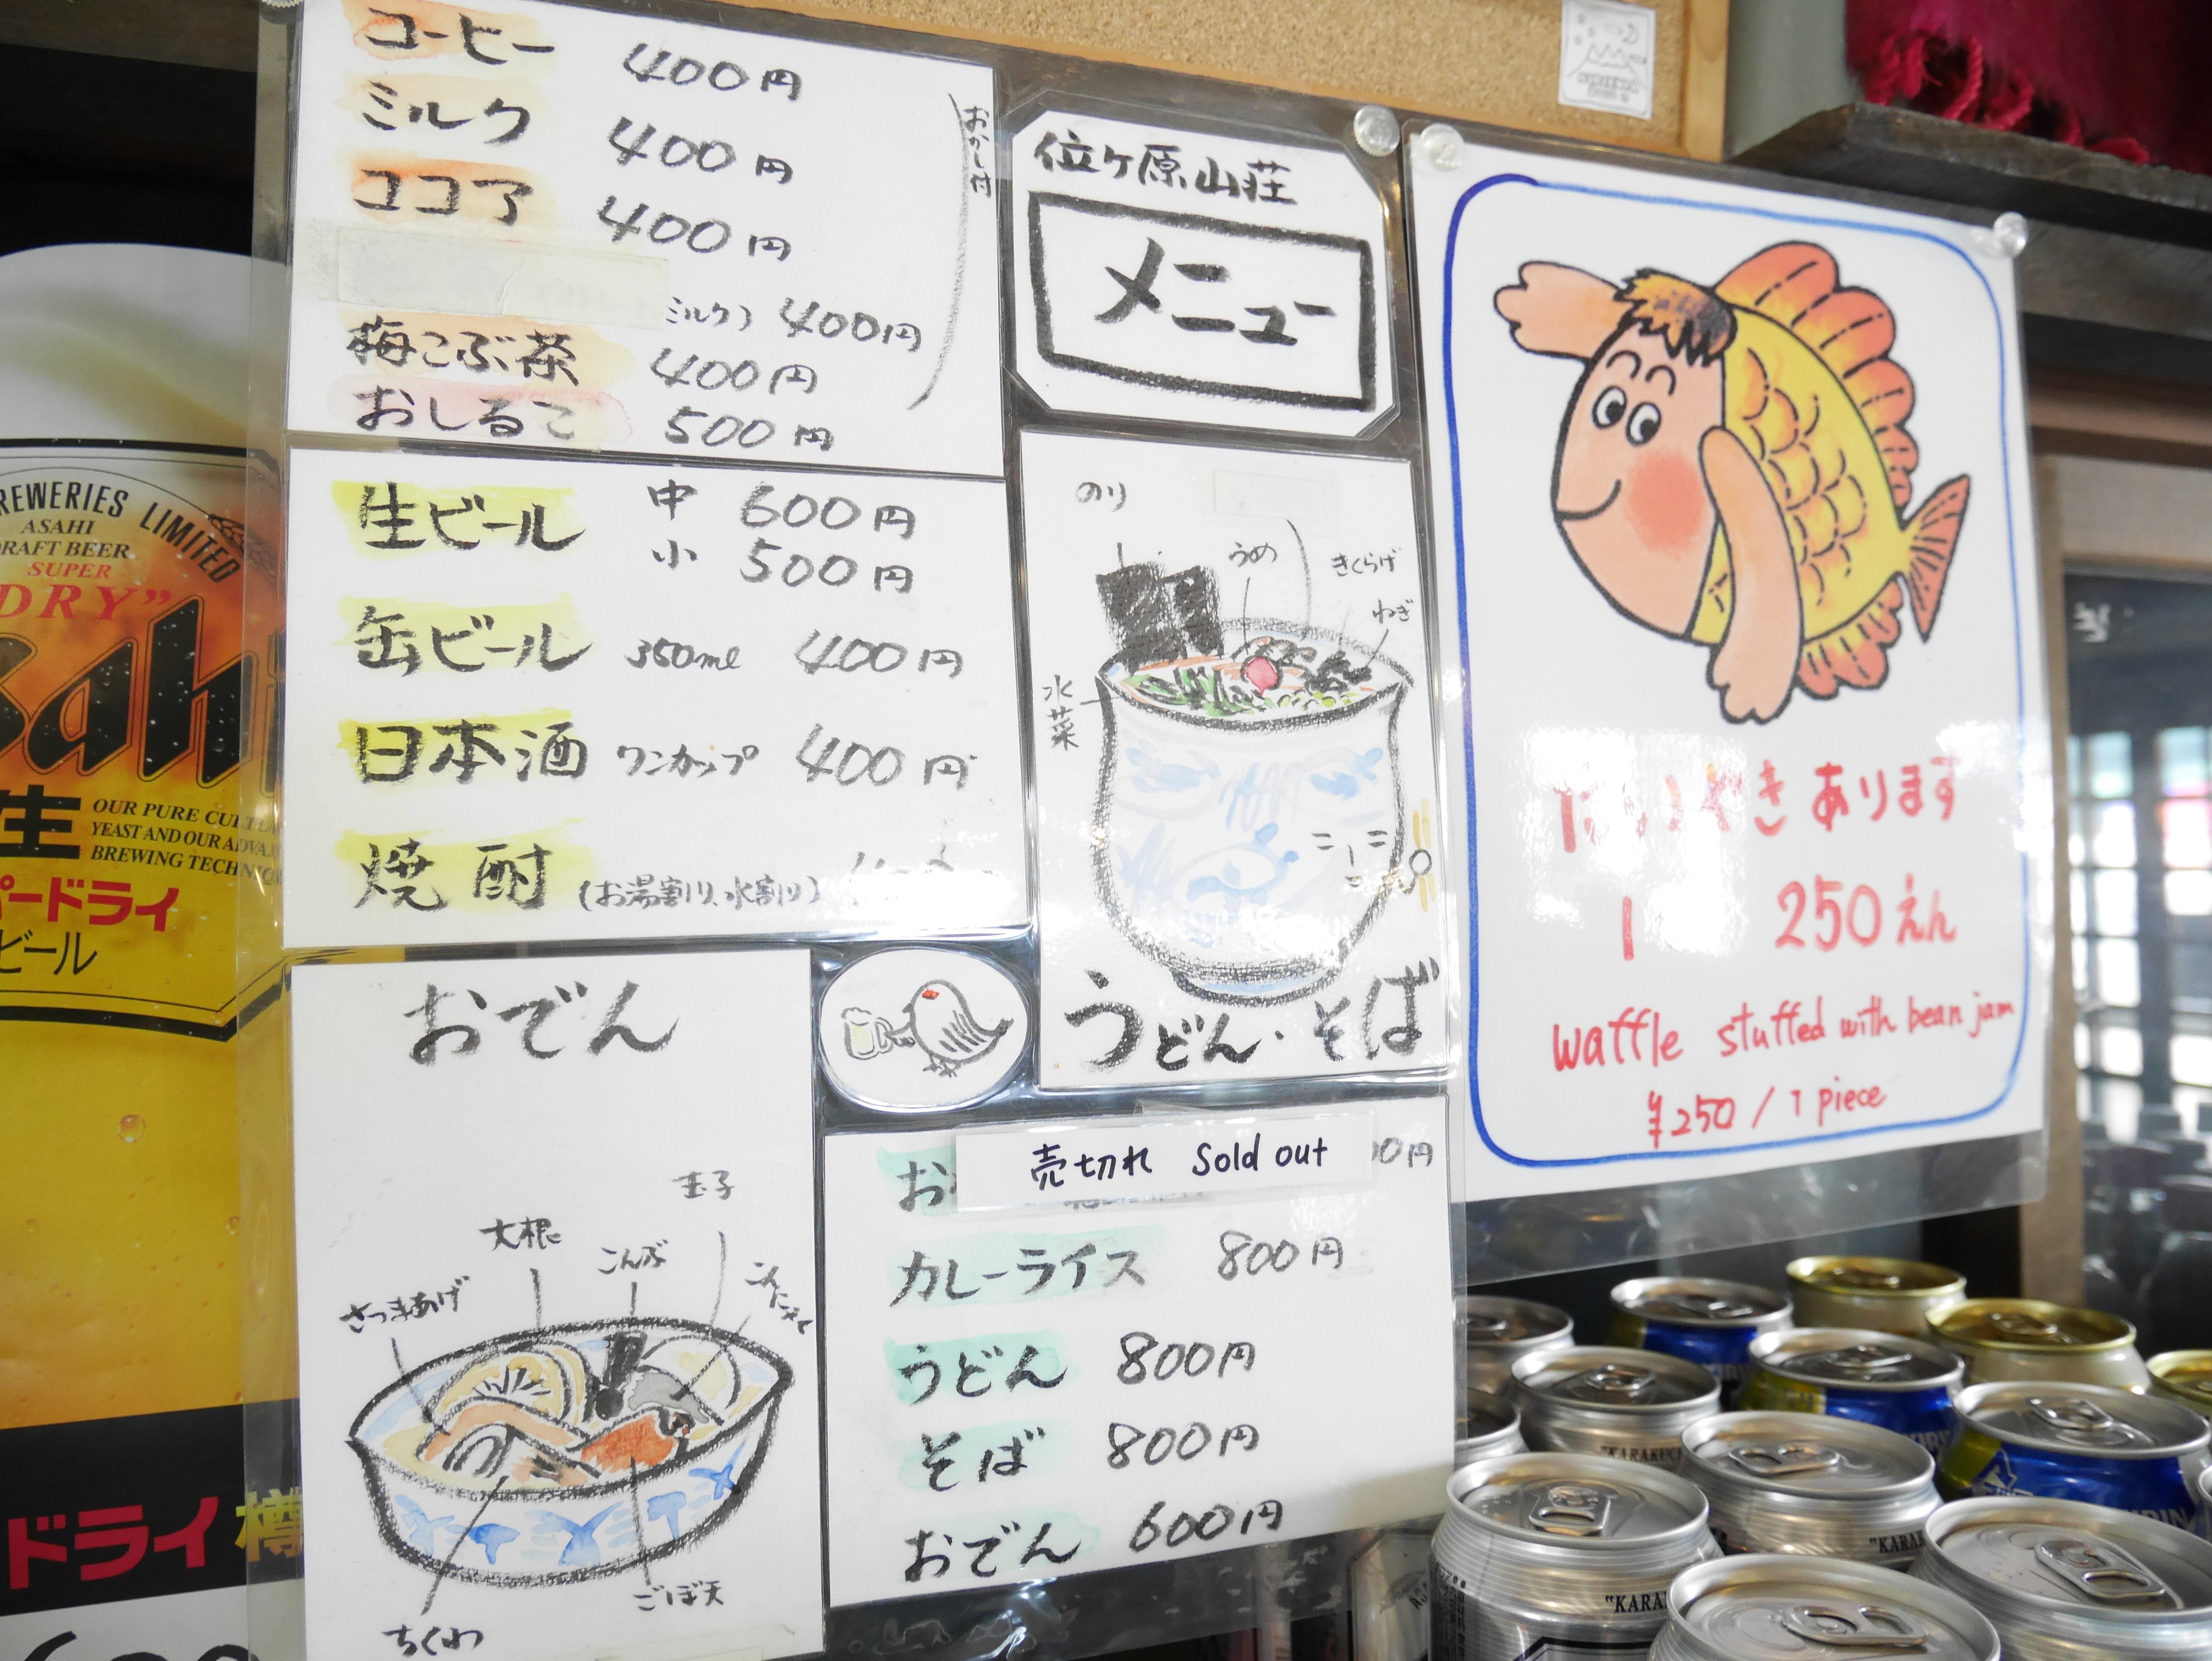 コーヒー 400円
ミルク 400円
ココア 400円
ミルク) 400円
梅こぶ茶 400円
おしるこ 500円
おかし付
生ビール 中 600円
小 500円
缶ビール 350ml 400円
日本酒 ワンカップ 400円
焼酎 (お湯割り、水割り)
おでん
玉子
大根
こんぶ
こんにゃく
さつまあげ
ごぼ天
ちくわ
位ヶ原山荘
メニュー
のり
うめ
きくらげ
ねぎ
水菜
うどん・そば
売切れ Sold out
カレーライス 800円
うどん 800円
そば 800円
おでん 600円
あります
1 250えん
waffle stuffed with bean jam
¥250 / 1 piece
BREWERIES LIMITED
ASAHI
DRAFT BEER
SUPER
"DRY"
Asahi
生
OUR PURE
YEAST AND OUR
BREWING
ドライ
ビール
ドライ 樽
"KARAKUCHI"
KIRIN